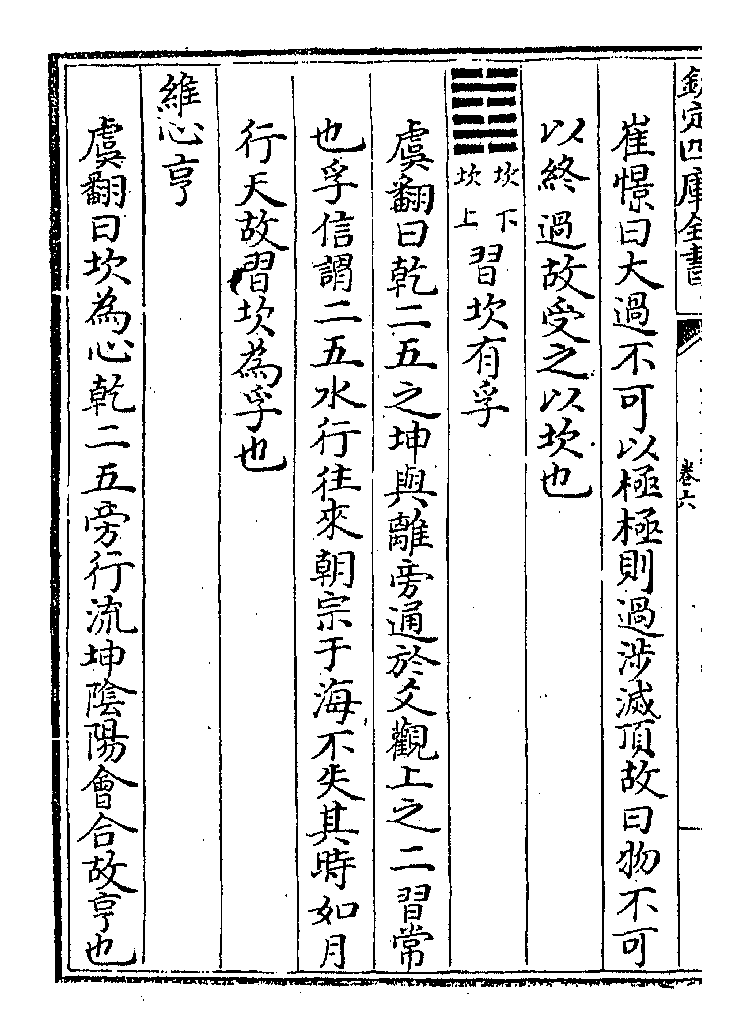 欽定四庫全書
卷六
崔憬曰大過不可以極極則過涉滅頂故曰物不可
以終過故受之以坎也
䷜坎下坎上習坎有孚
虞翻曰乾二五之坤與離旁通於爻觀上之二習常
也孚信謂二五水行往來朝宗于海不失其時如月
行天故習坎為孚也
維心亨
虞翻曰坎為心乾二五旁行流坤陰陽會合故亨也